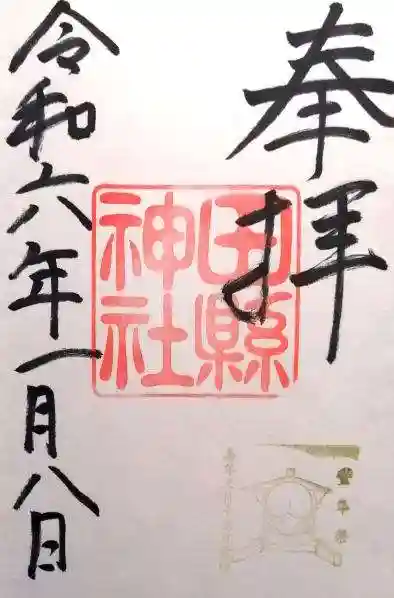 奉拝
田縣
神社
豊年祭
令和六年一月八日